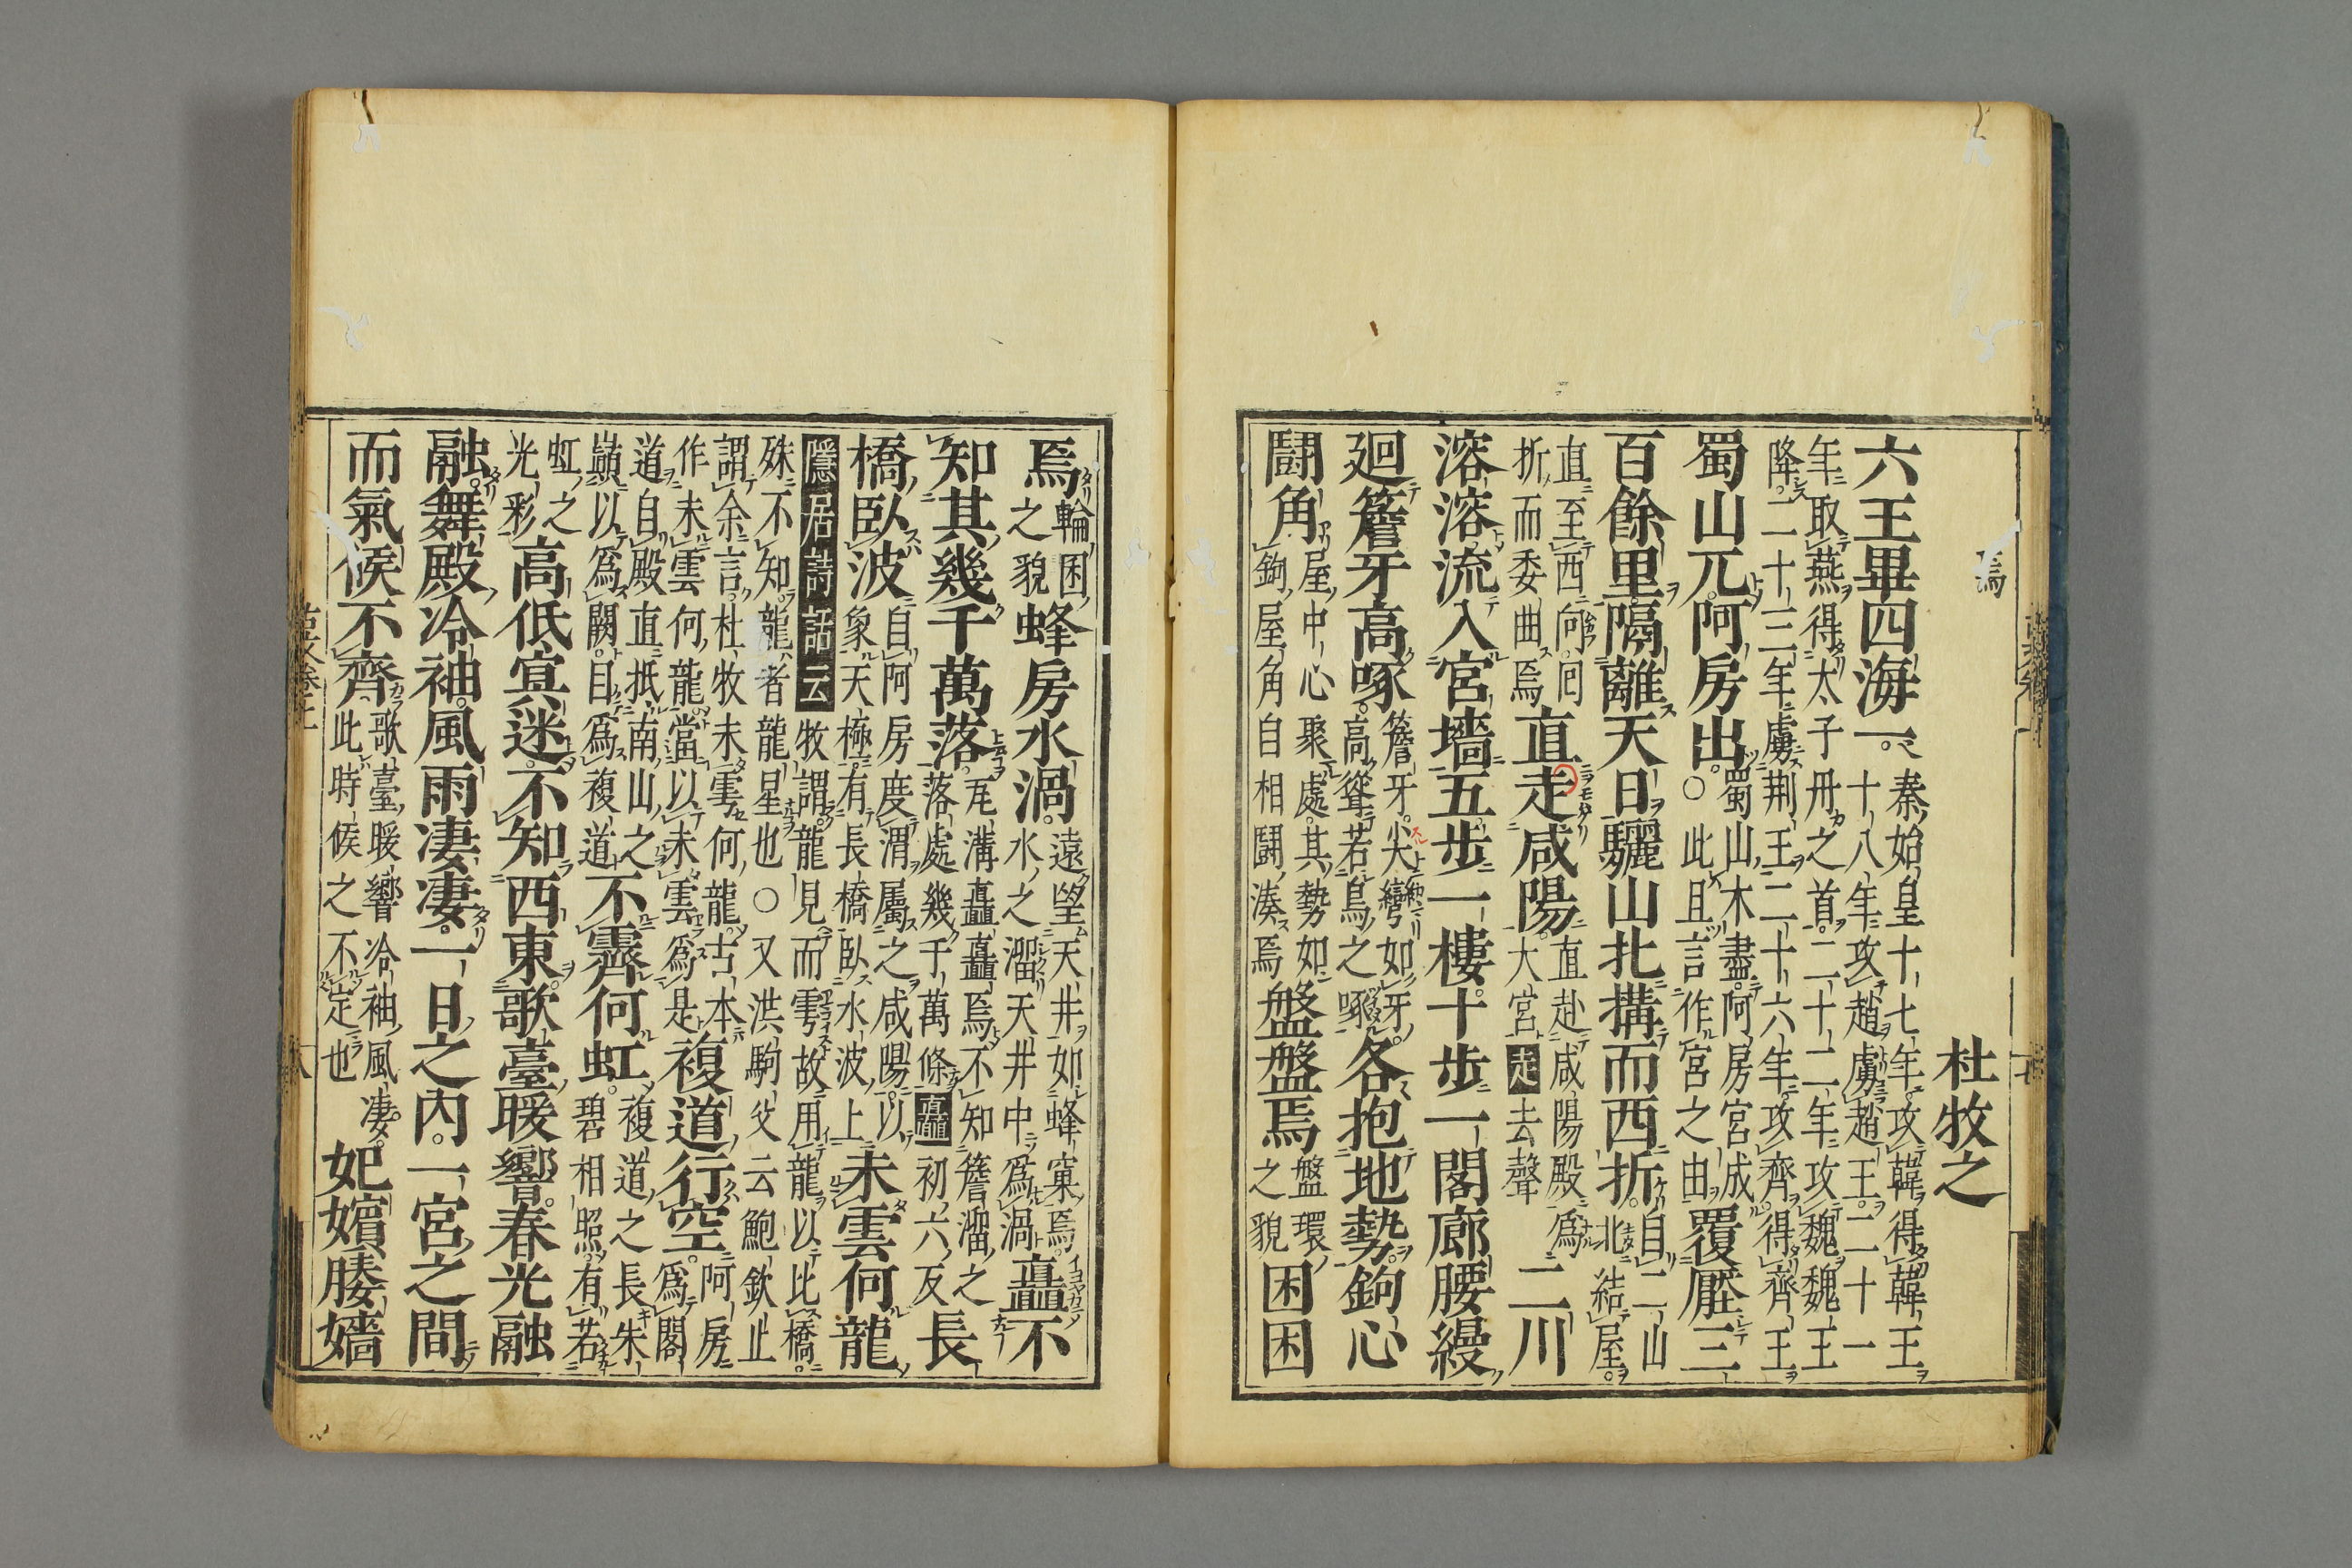 焉
杜牧之
六王畢四海一。秦始皇十七年攻韓得韓王
十八年攻趙虜趙王。二十一
年取燕得太子丹之首。二十二年攻魏魏王
降。二十三年虜荆王二十六年攻齊得齊王
蜀山兀。阿房出。蜀山木盡阿房宮成
○此且言作宮之由
覆壓三
百餘里。隔離天日驪山北搆而西折。自二山
北結屋。
直至西向。回
折而委曲焉
直走咸陽。直赴咸陽殿爲
大宮走去聲
二川
溶溶流入宮墻五步一樓。十步一閣廊腰縵
廻簷牙高啄。簷牙尖彎如牙。
高聳若鳥之啄
各抱地勢。鉤心
鬪角。屋中心聚處。其勢如
鉤屋角自相鬪湊焉
盤盤焉盤環
之貌
囷囷
焉輪囷
之貌
蜂房水渦。遠望天井如蜂窠焉。
水之溜天井中爲渦
矗不
知其幾千萬落。瓦溝矗矗焉不知簷溜之
落處幾千萬條矗初六反
長
橋臥波自阿房度渭屬之咸陽以
象天極有長橋臥水波上
未雲何龍
隱居詩話云牧謂龍見而雩故用龍以比橋。
殊不知龍者龍星也○又洪駒父云鮑欽止
謂余言。杜牧未雩何龍古本
作未雲何龍當以未雲爲是
複道行空。阿房
爲閣
道自殿直抵南山之
巔以爲闕。自爲複道
不霽何虹。複道之長朱
碧相照。有若
虹之
光彩
高低宜迷。不知西東。歌臺暖響。春光融
融。舞殿冷袖。風雨凄凄。一日之內。一宮之間
而氣候不齊歌臺暖響冷袖風凄。
此時候之不定也
妃嬪媵嬙